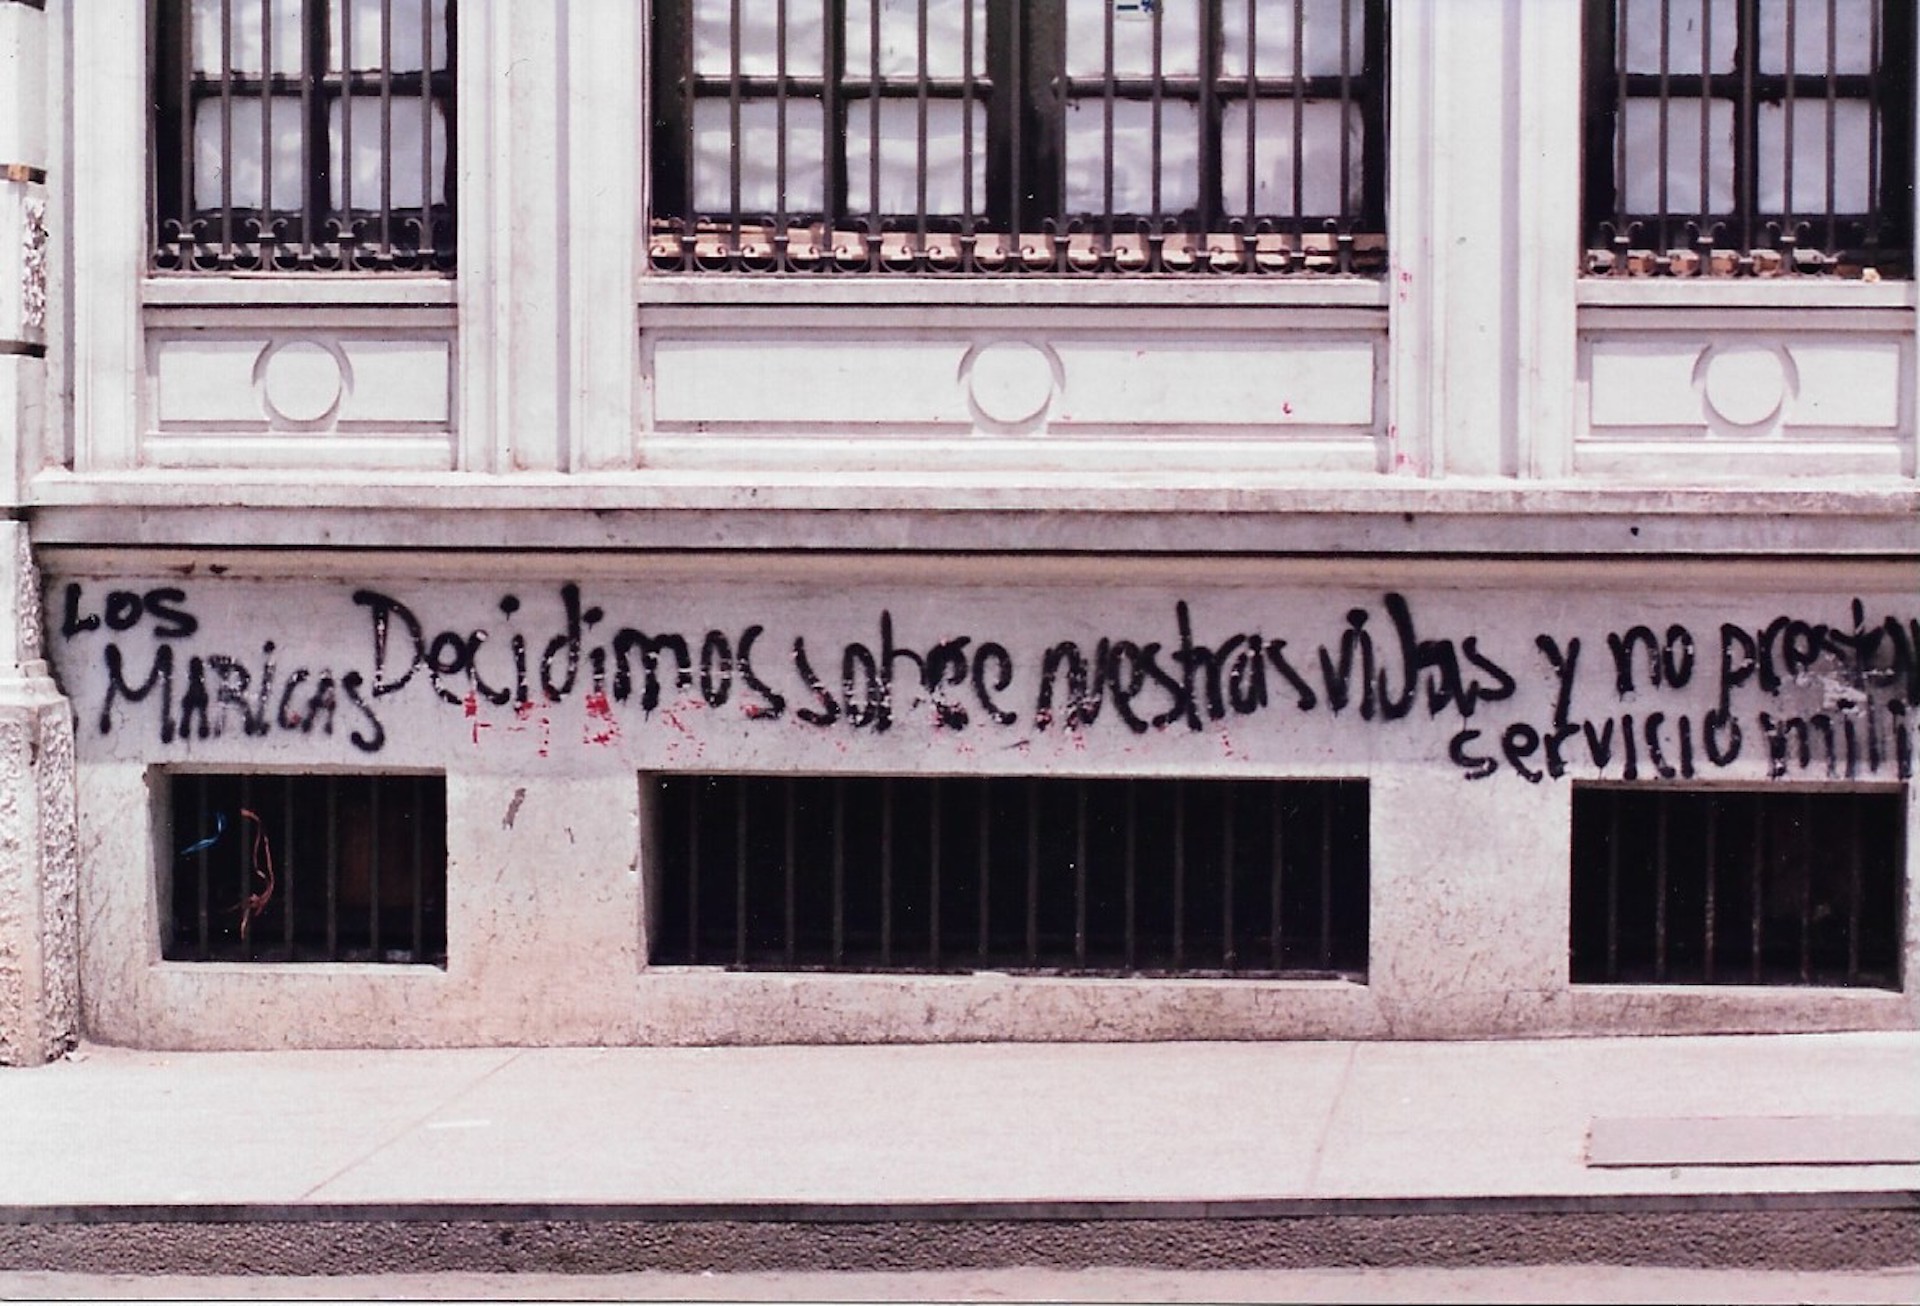 LOS
MARICAS Decidimos sobre nuestras vidas y no prestam
servicio mili